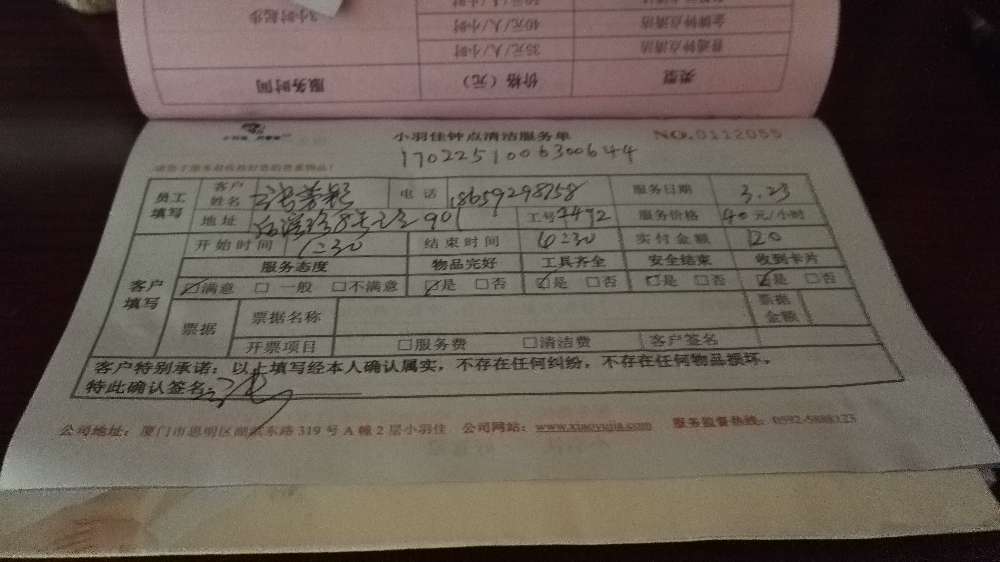 3小时起步
40元/人/小时
金牌钟点清洁
35元/人/小时
普通钟点清洁
服务时间
价格（元）
类型
小羽佳钟点清洁服务单
NO.0112055
1702251006300644
员工填写
客户姓名
电话 18659298758
服务日期 3.23
地址
901
工号 7492
服务价格 40元/小时
客户填写
开始时间 1:30
结束时间 6:30
实付金额 120
服务态度 物品完好 工具齐全 安全结束 收到卡片
☑满意 □一般 □不满意 ☑是 □否 ☑是 □否 ☑是 □否 ☑是 □否
票据
票据名称
票据金额
开票项目 □服务费 □清洁费 客户签名
客户特别承诺：以上填写经本人确认属实，不存在任何纠纷，不存在任何物品损坏。
特此确认签名：
公司地址：厦门市思明区湖滨东路319号A幢2层小羽佳 公司网站：www.xiaoyujia.com 服务监督热线：0592-5888123